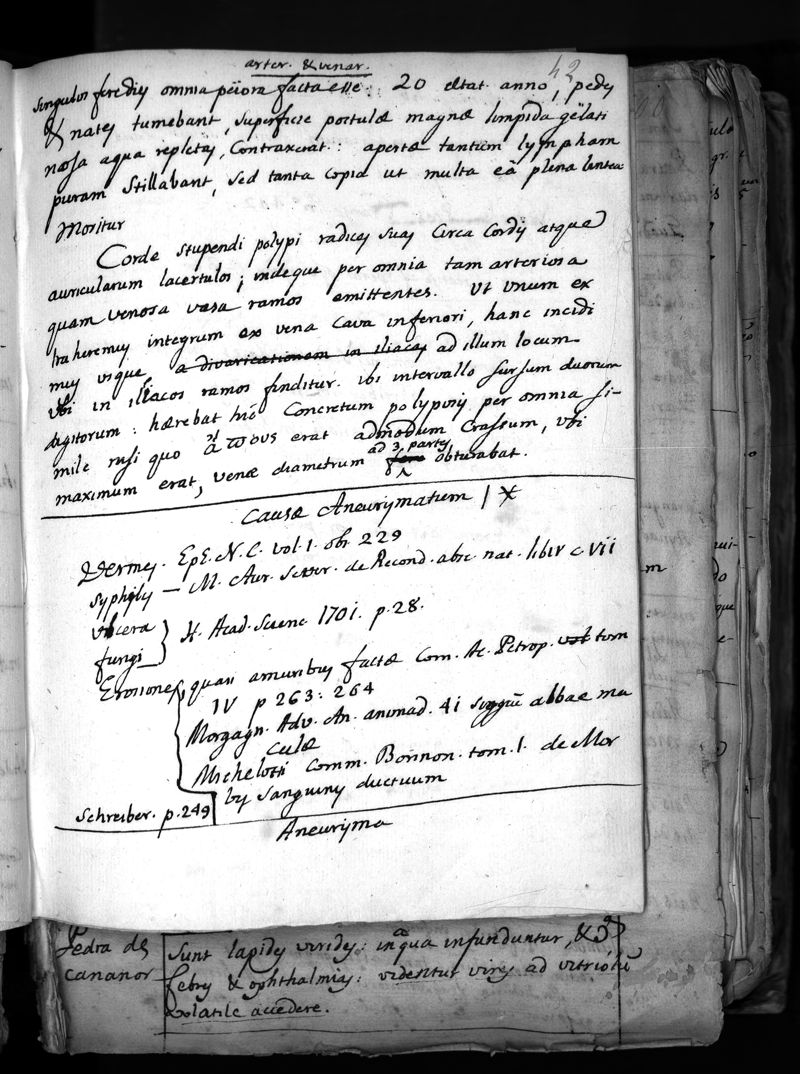 arter. & venar.
42
singulos fere dies omnia peiora facta esse. 20 etat. anno, pedes
& nates tumebant, superficie postulæ magnæ limpida gelati
nosa aqua repletæ, Contraxerat: apertæ tantum lympham
puram stillabant, sed tanta copia ut multa eâ plena lintea
Moritur
Corde stupendi polypi radices suas Circa Cordis atque
auricularum lacertulos; indeque per omnia tam arteriosa
quam venosa vasa ramos emittentes. Ut unum ex
traheremus integrum ex vena Cava inferiori, hanc incidi
mus usque a divaricationem in iliacas ad illum locum
Ubi in iliacos ramos finditur. ibi intervallo sursum duorum
digitorum: hærebat hic Concretum polyposis per omnia si-
mile nisi quo erat admodum Crassum, ubi
maximum erat, venæ diametrum ad 3 partes fere obturabat.
Causæ Aneurysmatum | X
Vermes. Ep E. N. C. vol. 1. obs 229
Syphilis — M. Aur. Sever. de Recond. absc. nat. lib IV c. VII
ulcera } H. Acad. Scienc 1701. p. 28.
fungi
Erosiones quasi a muribus factæ Com. Ac. Petrop. vol tom
IV p 263. 264
Morgagn. Adv. An. animad. 41 albae ma
culæ
Michelotti Comm. Bonnon. tom. 1. de Mor
bis sanguinis ductuum
Schreiber. p. 249
Aneurisma
Pedra de
cananor
Sunt lapides virides: in aqua infunduntur, &
febres & ophthalmias: videntur vires ad vitriolu
volatile accedere.